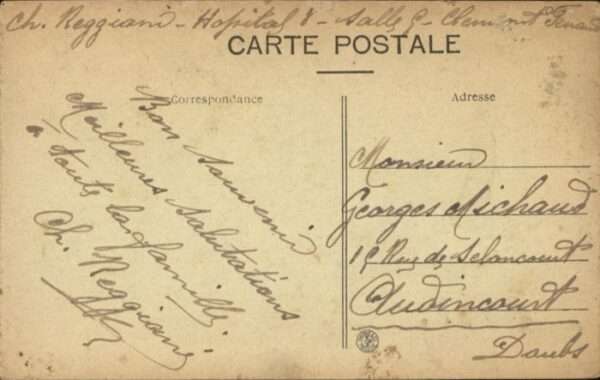 Ch. Reggiani - Hopital 8 - Salle 9 - Clermont Ferrand
CARTE POSTALE
Correspondance
Adresse
Bon Souvenir
Meilleures Salutations
à toute la famille.
Ch. Reggiani
Monsieur
Georges Michaud
19 Rue de Selancourt
Audincourt
Doubs